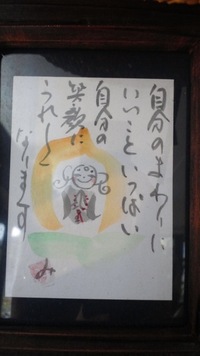 自分のまわりに
いいこといっぱい
自分の
笑顔に
うれしく
なります
み